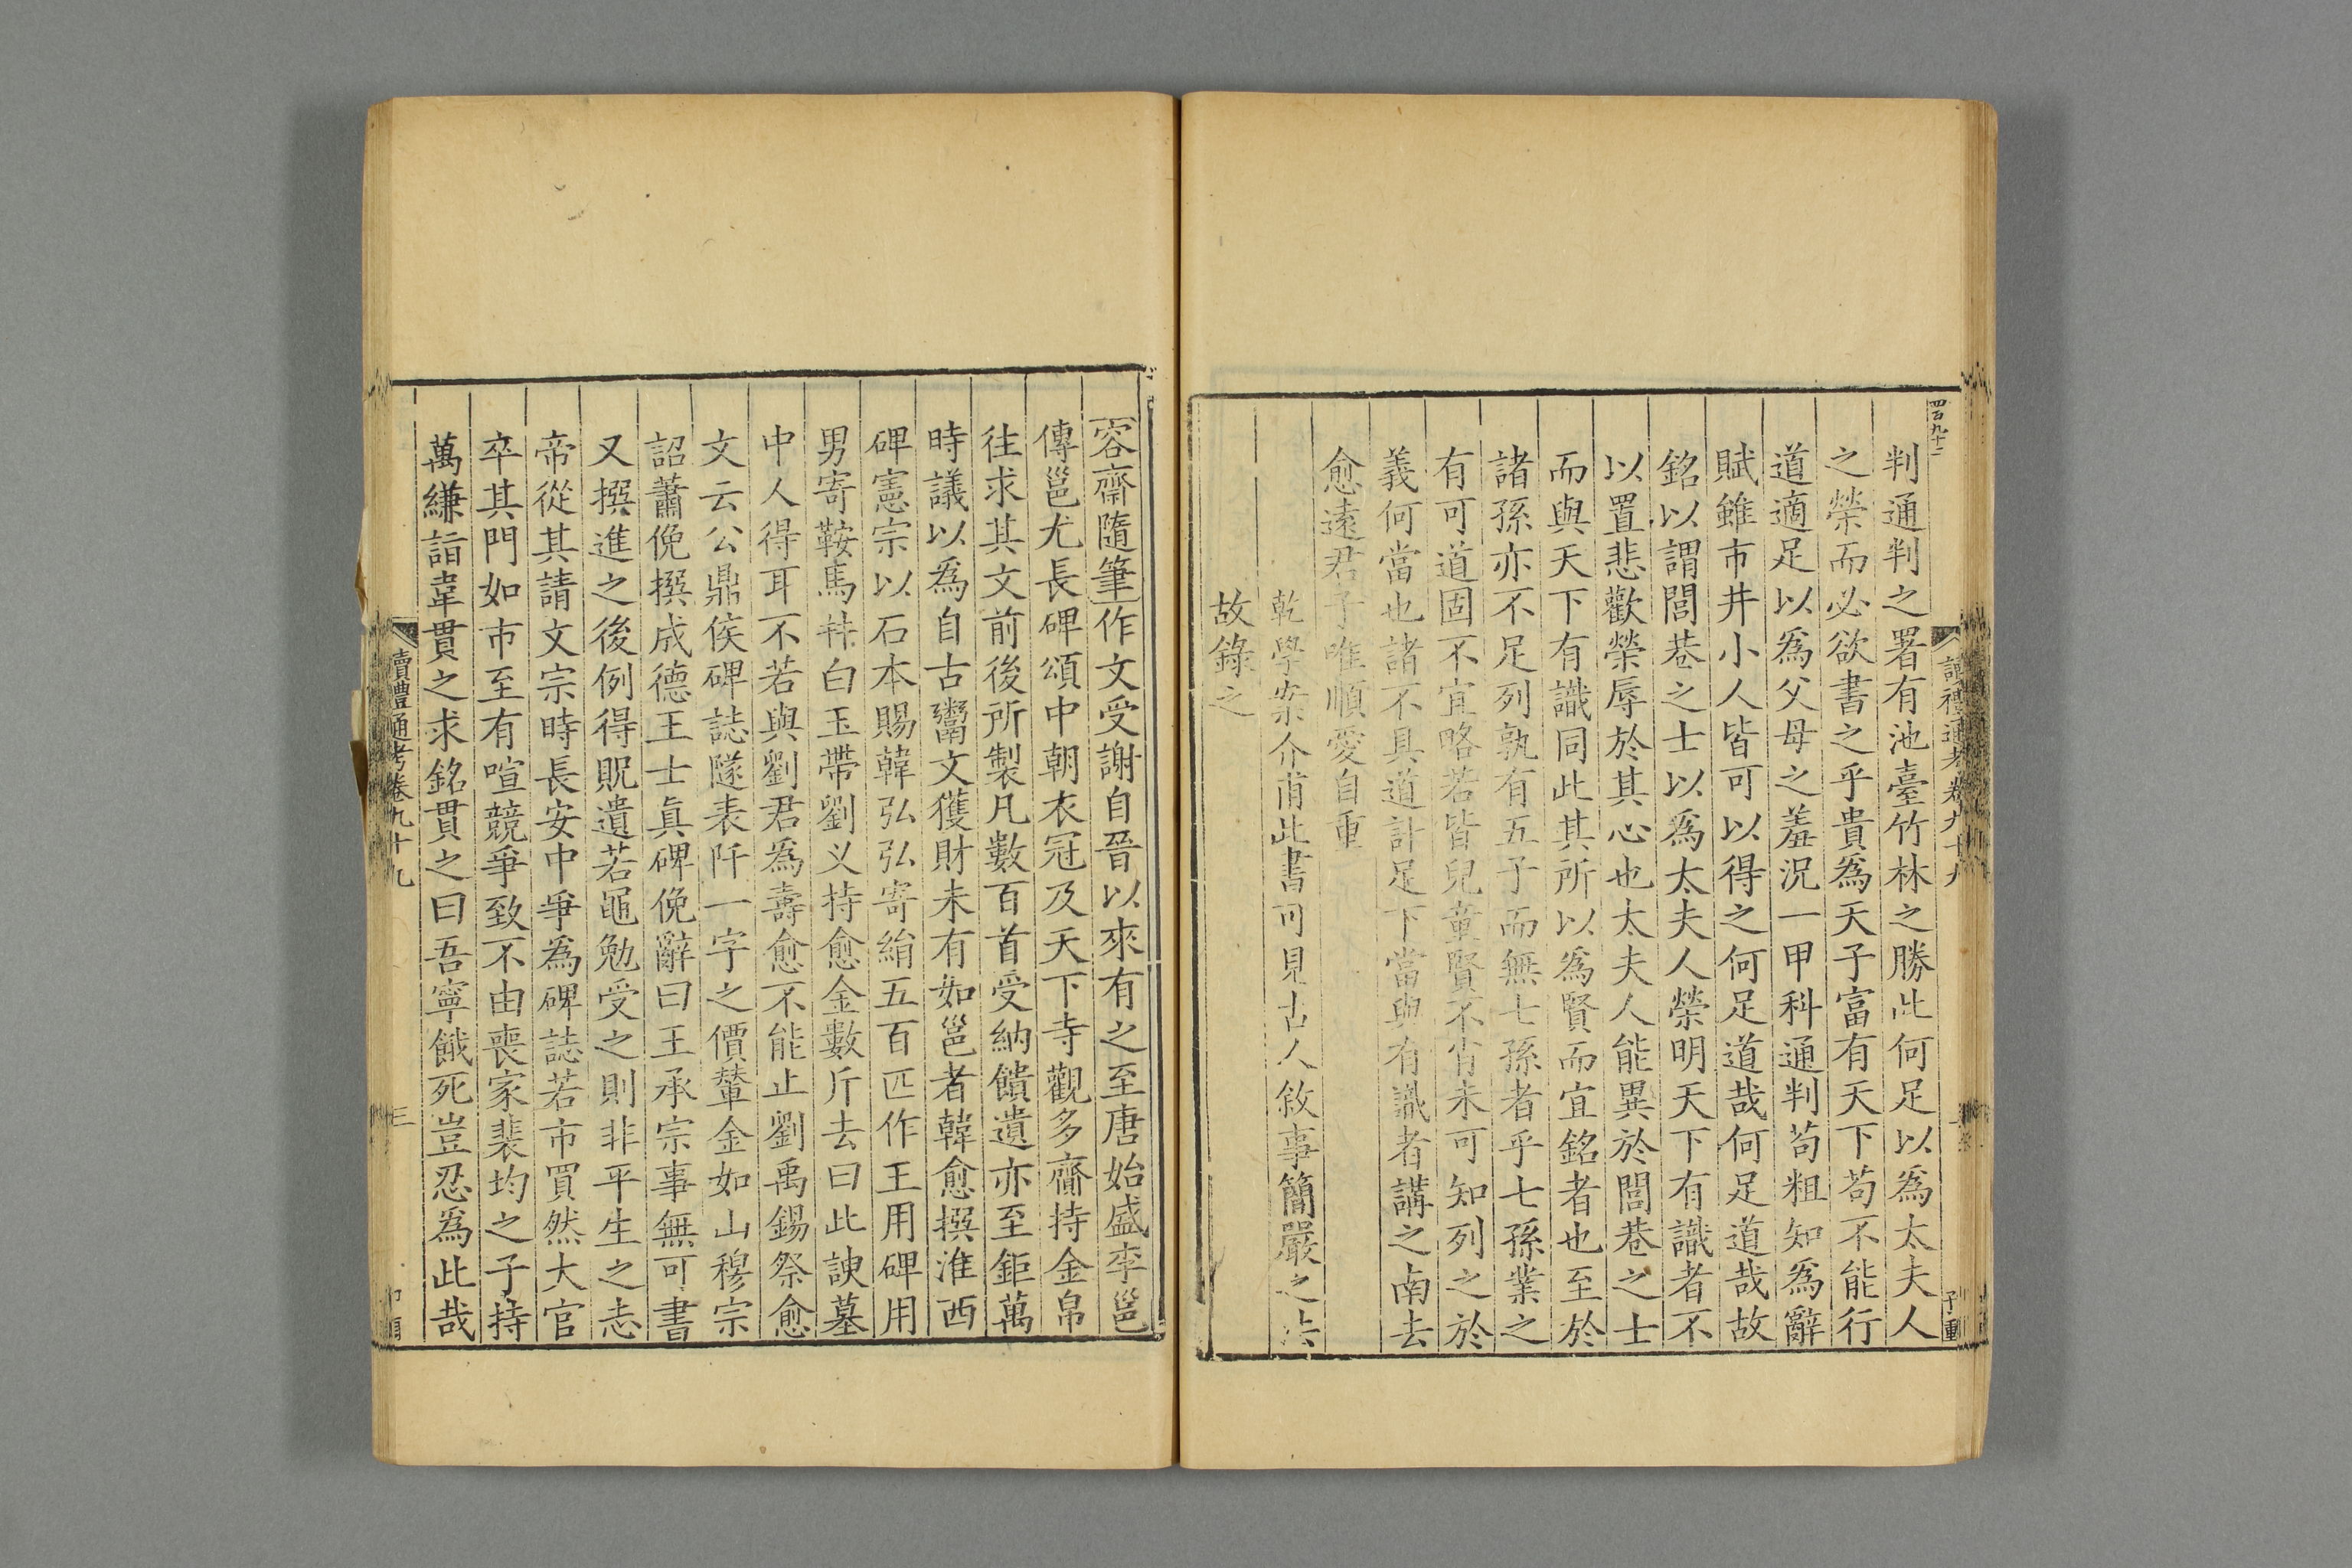 四百九十二
讀禮通考卷九十九
判通判之署有池臺竹林之勝此何足以為太夫人
之榮而必欲書之乎貴為天子富有天下苟不能行
道適足以為父母之羞況一甲科通判苟粗知為辭
賦雖市井小人皆可以得之何足道哉何足道哉故
銘以謂閭巷之士以為太夫人榮明天下有識者不
以置悲歡榮辱於其心也太夫人能異於閭巷之士
而與天下有識同此其所以為賢而宜銘者也至於
諸孫亦不足列孰有五子而無七孫者乎七孫業之
有可道固不宜略若皆兒童賢不肖未可知列之於
義何當也諸不具道計足下當與有識者講之南去
愈遠君子唯順愛自重
乾學案介甫此書可見古人敘事簡嚴之法
故錄之
容齋隨筆作文受謝自晉以來有之至唐始盛李邕
傳邕尤長碑頌中朝衣冠及天下寺觀多齎持金帛
往求其文前後所製凡數百首受納饋遺亦至鉅萬
時議以為自古鬻文獲財未有如邕者韓愈撰淮西
碑憲宗以石本賜韓弘弘寄絹五百匹作王用碑用
男寄鞍馬幷白玉帶劉义持愈金數斤去曰此諛墓
中人得耳不若與劉君為壽愈不能止劉禹錫祭愈
文云公鼎侯碑誌隧表阡一字之價輦金如山穆宗
詔蕭俛撰成德王士真碑俛辭曰王承宗事無可書
又撰進之後例得貺遺若黽勉受之則非平生之志
帝從其請文宗時長安中爭為碑誌若市買然大官
卒其門如市至有喧競爭致不由喪家裴均之子持
萬縑詣韋貫之求銘貫之曰吾寧餓死豈忍為此哉
讀禮通考卷九十九
三